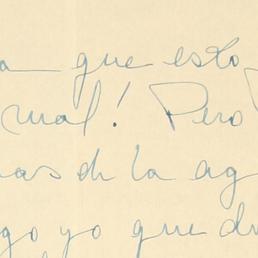 a que esto
mal! Pero
mas de la ag
go yo que du